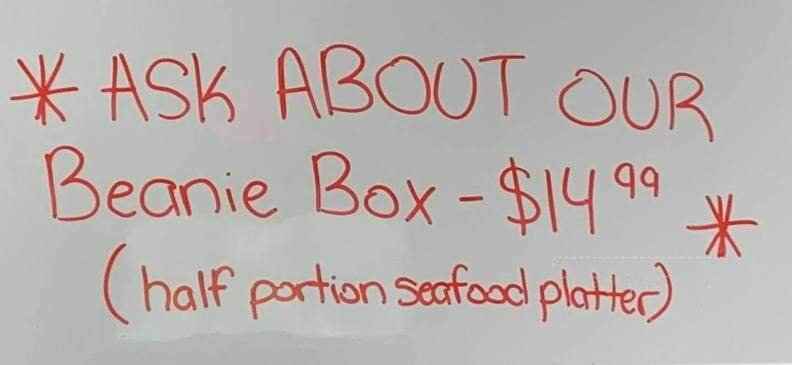 * ASK ABOUT OUR
Beanie Box - $14.99 *
(half portion seafood platter)